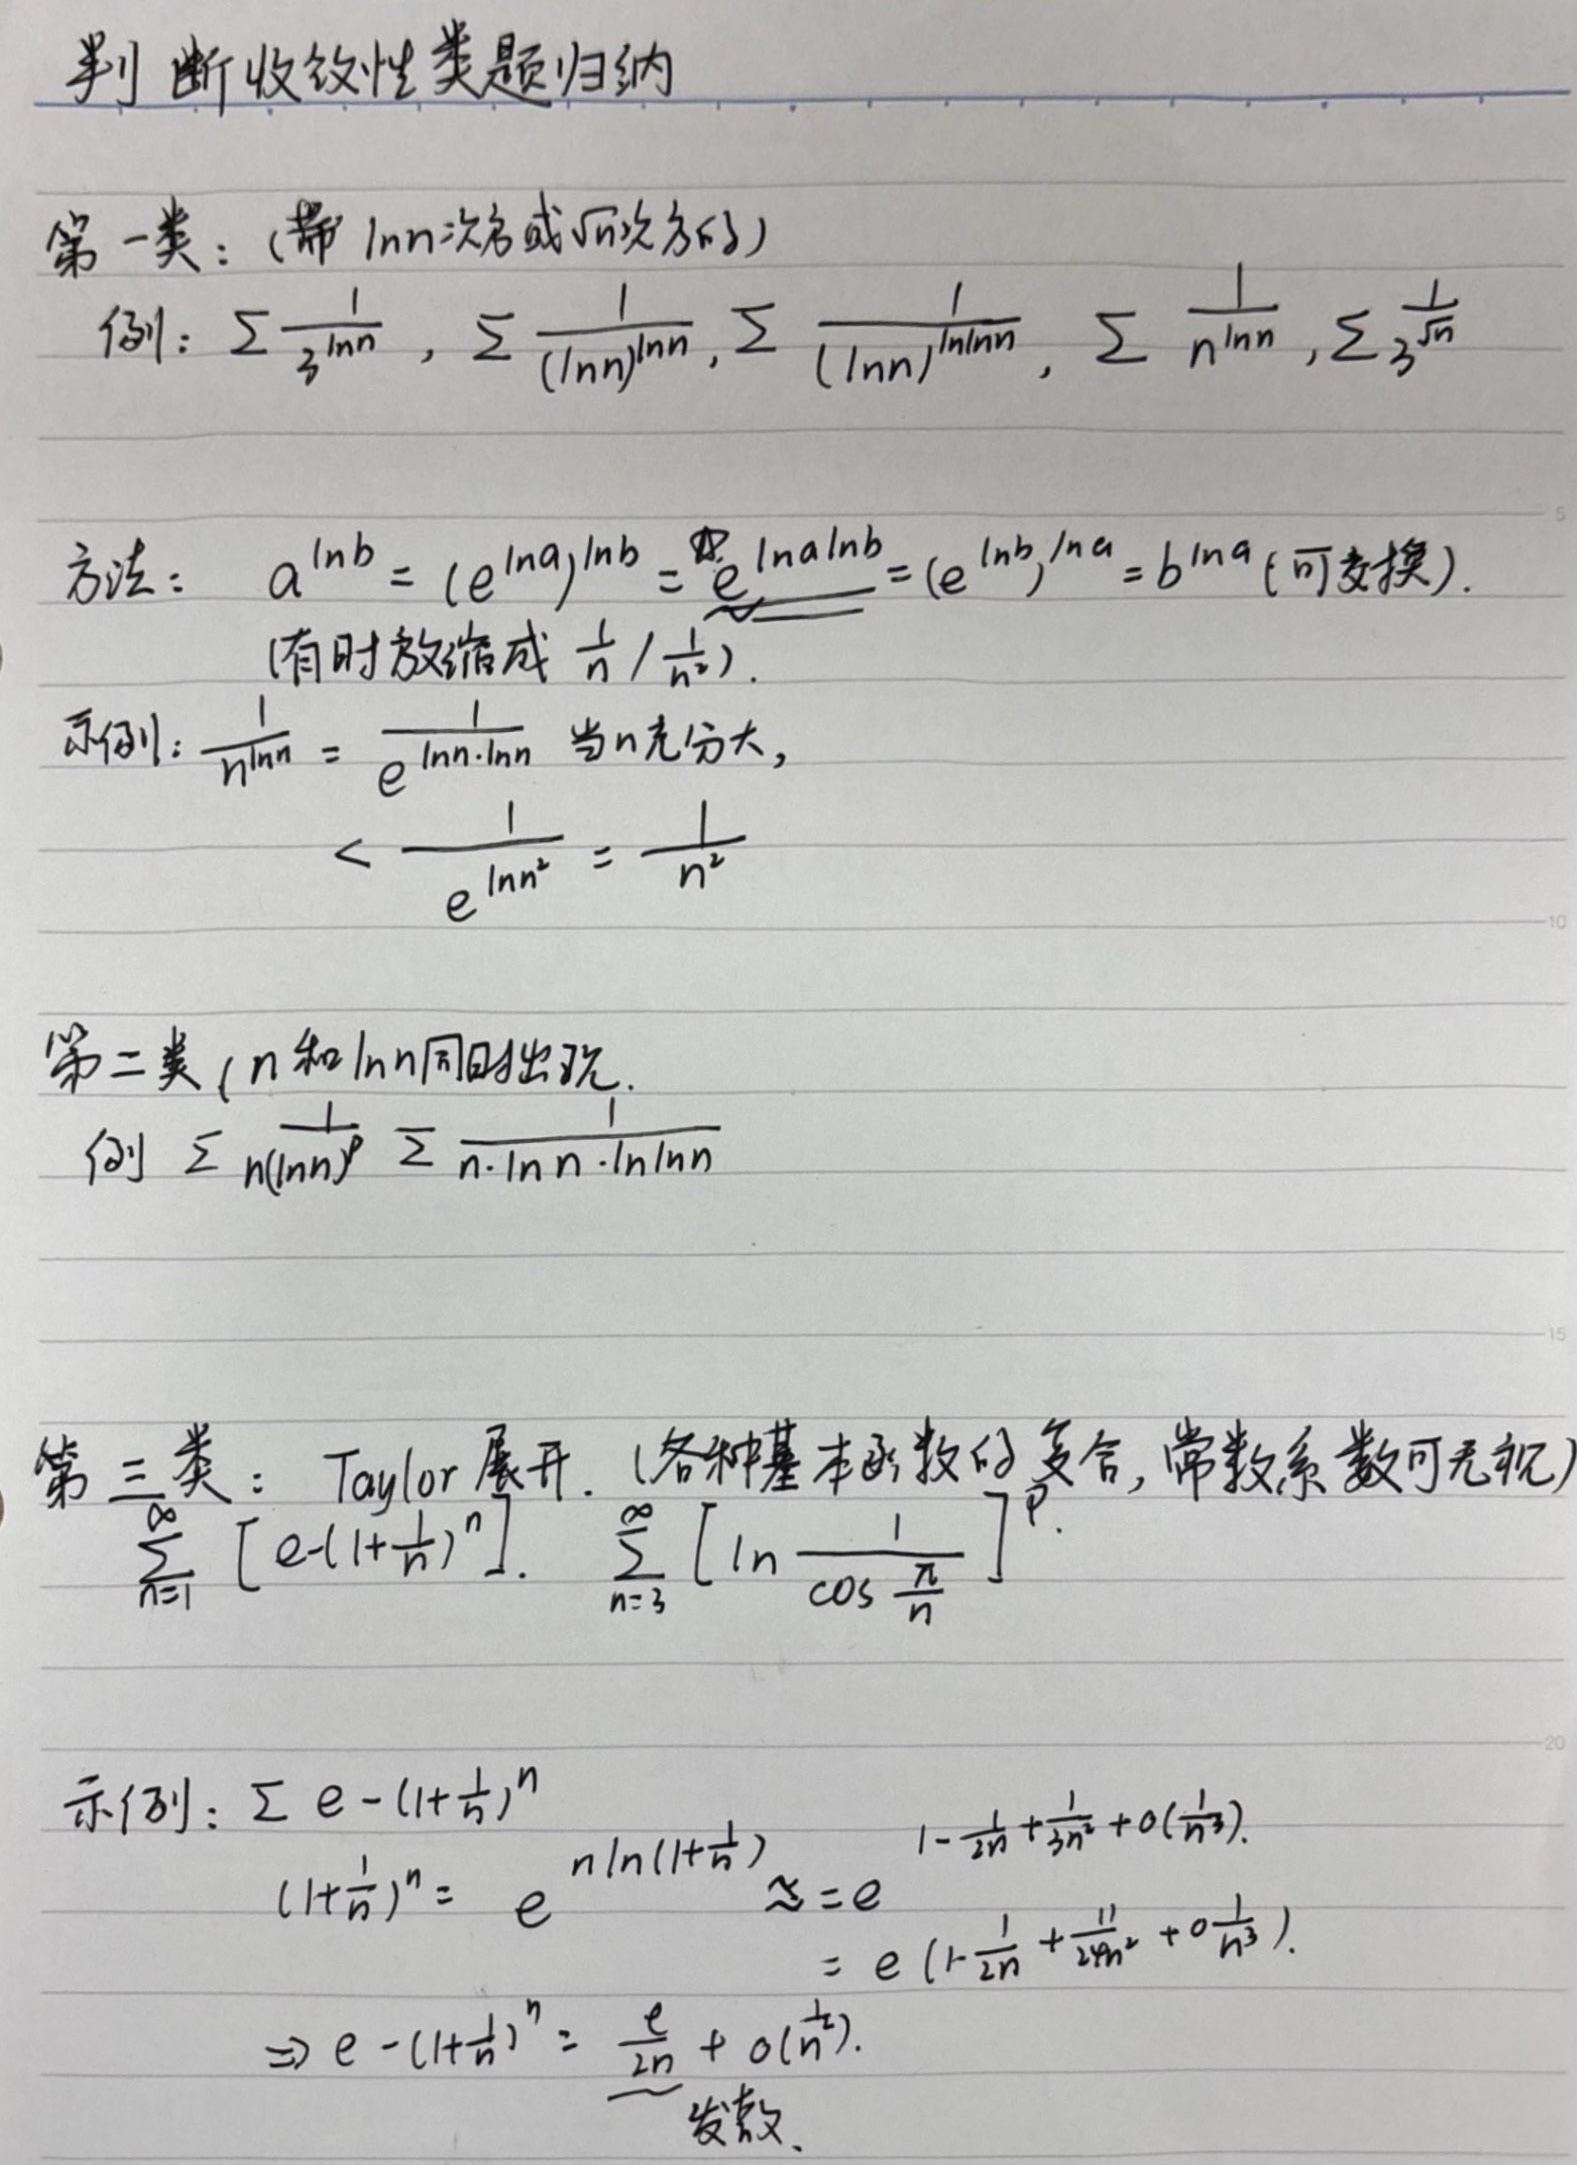 判断收敛性类题归纳
第一类：(带 lnn次方或√n次方的)
例：Σ 1/3^{lnn} , Σ 1/(lnn)^{lnn} , Σ 1/(lnn)^{lnlnn} , Σ 1/n^{lnn} , Σ 3^{1/√n}
5
方法： a^{lnb} = (e^{lna})^{lnb} = e^{lnalnb} = (e^{lnb})^{lna} = b^{lna} (可交换).
(有时放缩成 1/n / 1/n²).
示例：1/n^{lnn} = 1/e^{lnn·lnn} 当n充分大,
< 1/e^{lnn²} = 1/n²
10
第二类 ( n 和 lnn同时出现.
例 Σ 1/n(lnn)^p Σ 1/n·lnn·lnlnn
15
第三类： Taylor展开. (各种基本函数的复合, 常数系数可无视)
Σ_{n=1}^{∞} [e-(1+1/n)^n]. Σ_{n=3}^{∞} [ln 1/cos π/n]^p.
20
示例：Σ e-(1+1/n)^n
(1+1/n)^n = e^{nln(1+1/n)} = e^{1-1/2n+1/3n²+o(1/n³)}.
= e(1-1/2n+11/24n²+o1/n³).
⇒ e-(1+1/n)^n = e/2n + o(1/n²).
发散.